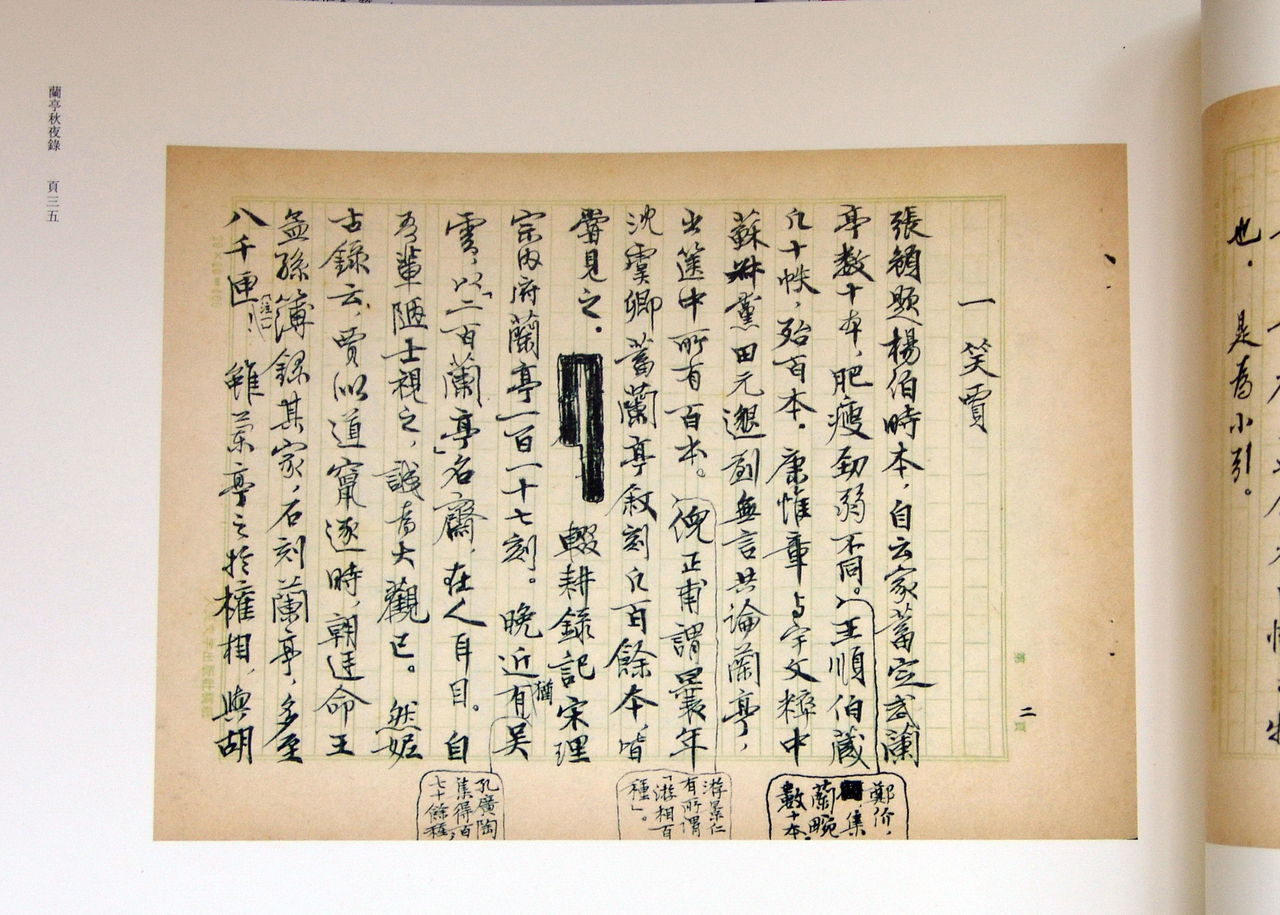 蘭亭秋夜錄 頁三五
一 笑賈
張㮊題楊伯時本，自云家蓄定武蘭
亭数十本，肥瘦勁弱不同。王順伯藏
几十帙，殆百本。康惟章与宇文粹中
蘇黨田元邈劉無言共論蘭亭，
出篋中所有百本。倪正甫謂曩年
沈虞卿蓄蘭亭敘刻几百餘本，皆
嘗見之。
輟耕錄記宋理
宗内府蘭亭一百一十七刻。晚近猶有吴
雲，以「二百蘭亭」名齋，在人耳目。自
吾輩陋士視之，誠為大觀已。然
古錄云，賈似道竄逐時，朝廷命王
孟孫簿錄其家，石刻蘭亭，多至
八千匣！雖蘭亭之於權相，與胡
鄭价，集蘭畹数十本
游景仁有所谓「游相百種」。
孔廣陶集得百七十餘種
二
頁
也．是為小引。